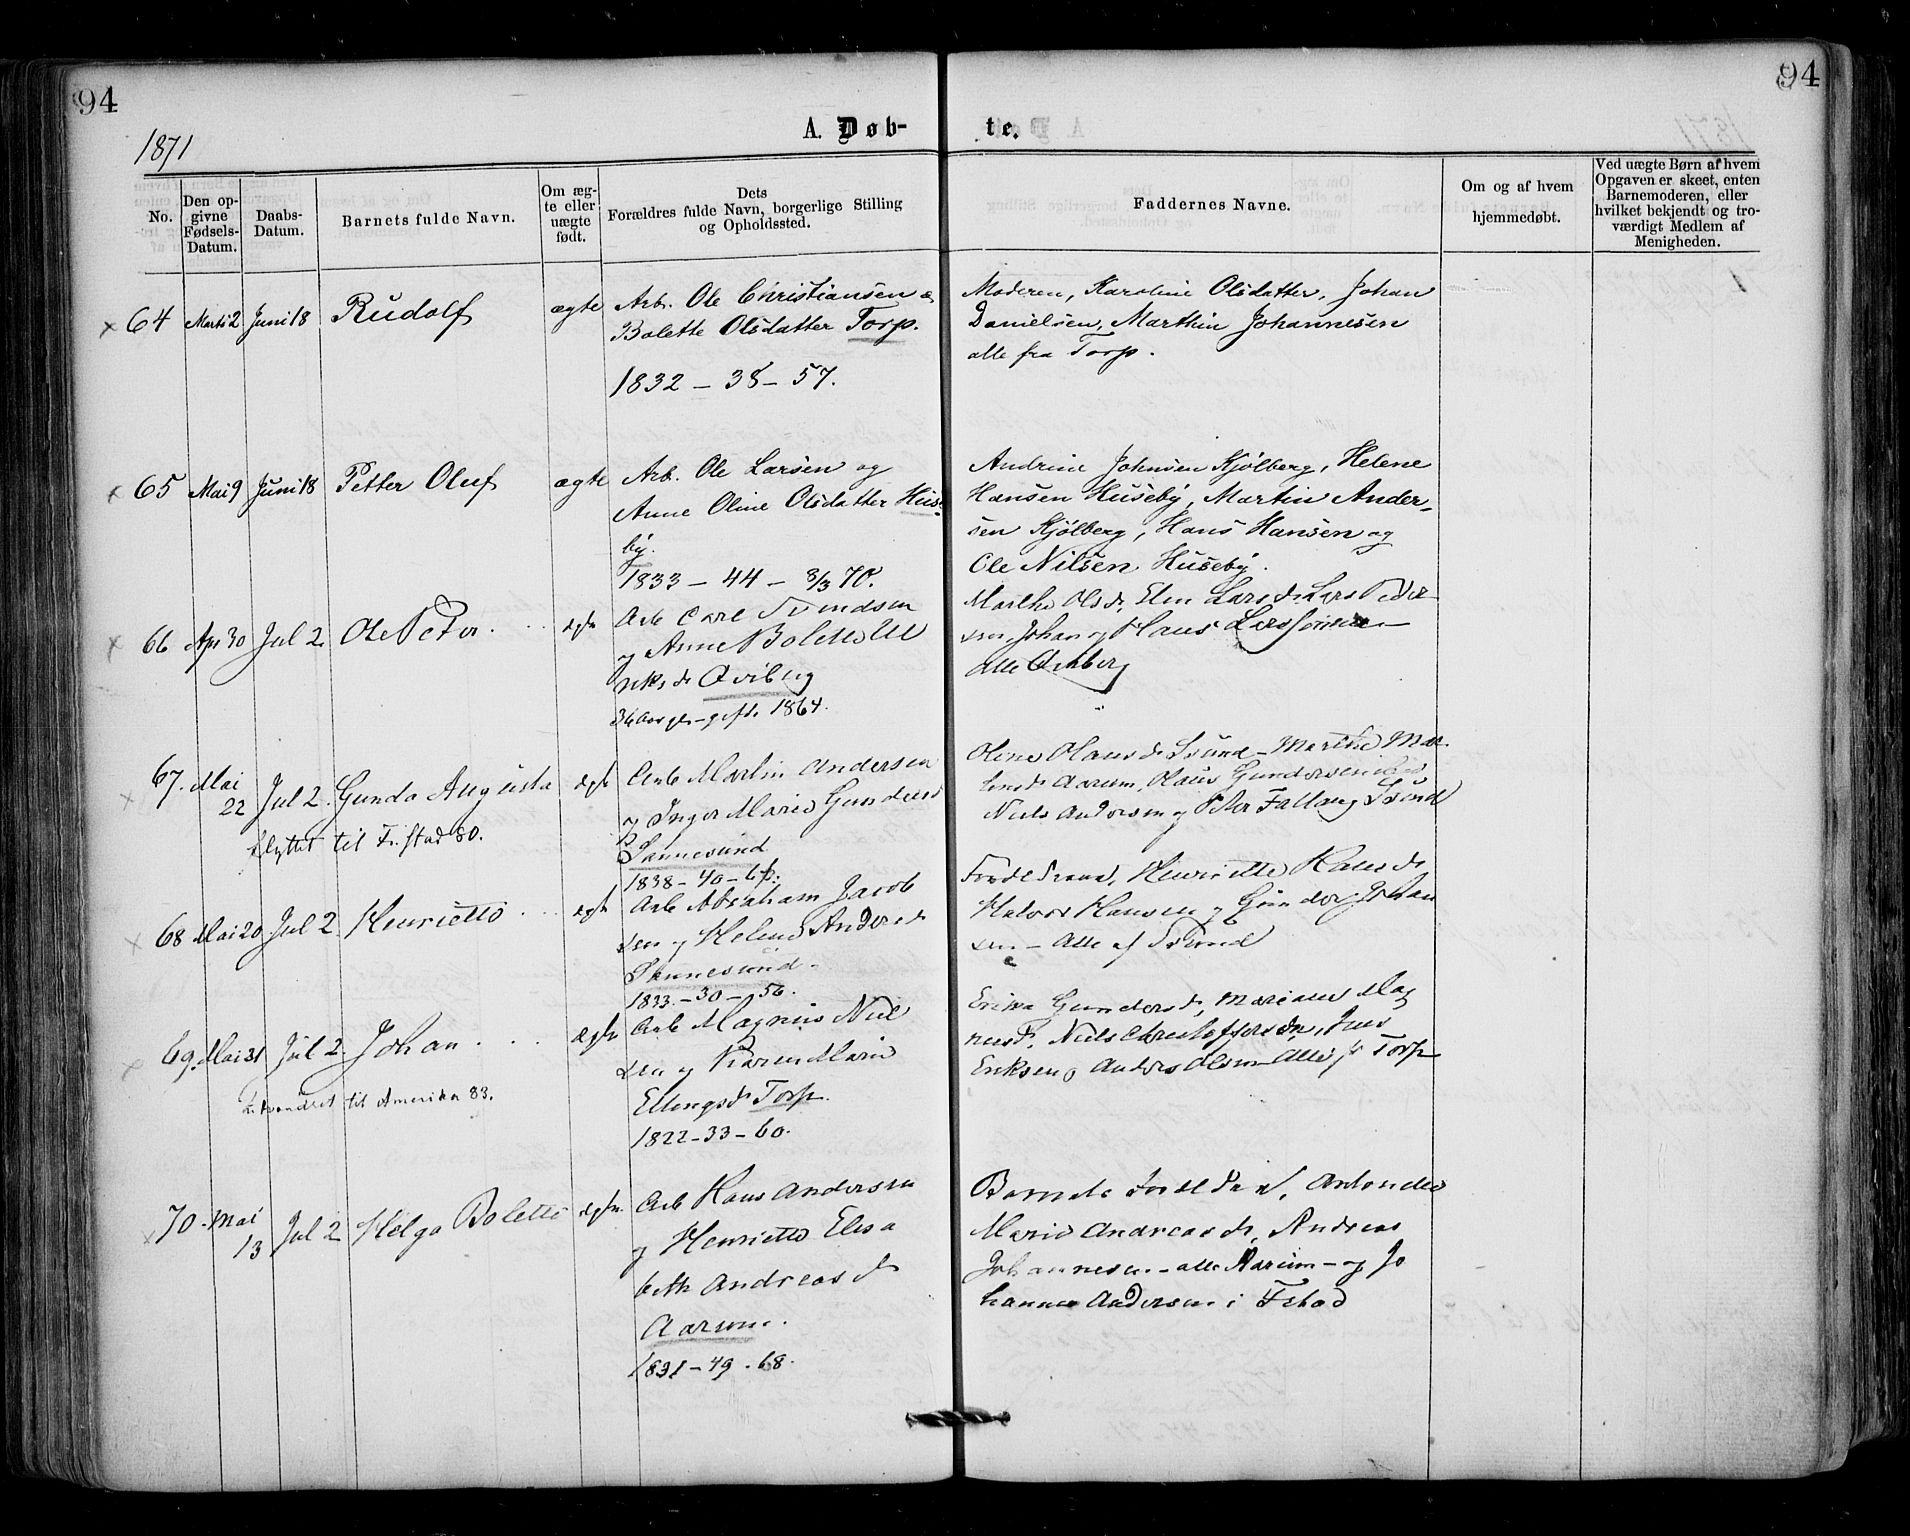 94
94
1871
A. Døb-
te.
No.
Den op-
givne
Fødsels-
Datum.
Daabs-
Datum.
Barnets fulde Navn.
Om æg-
te eller
uægte
født.
Dets
Forældres fulde Navn, borgerlige Stilling
og Opholdssted.
Faddernes Navne.
Om og af hvem
hjemmedøbt.
Ved uægte Børn af hvem
Opgaven er skeet, enten
Barnemoderen, eller
hvilket bekjendt og tro-
værdigt Medlem af
Menigheden.
64 Marts 2 Juni 18 Rudolf ægte
Arb. Ole Christiansen
Bolette Olsdatter Torp.
1832 - 38 - 57.
Moderen, Karoline Olsdatter, Johan
Danielsen, Marthin Johannesen
alle fra Torp.
65 Mai 9 Juni 18 Petter Oluf ægte
Arb. Ole Larsen og
Anne Oline Olsdatter Huse-
by.
1833 - 44 - 8/3 70.
Andrine Johnsen Kjølberg, Helene
Hansen Huseby, Martin Ander-
sen Kjølberg, Hans Hansen og
Ole Nilsen Huseby.
66 Apr 30 Jul 2 Ole Peter ægte
Arb Carl Svendsen
og Anne Bolette
36 Aar gl - gift 1864.
Marthe Olsd, Elen Larsd, Lars Peder-
sen, Johan og Hans
alle
67. Mai
22 Jul 2. Gunda Augusta ægte
flyttet til Fr.stad 80.
Arb Martin Andersen
og Inger Marie Gundersd
Sannesund
1838 - 40 - 6
Oline Olausd Ssund - Marthe Mar-
Aarum, Olaus Gundersen
Niels Andersen og Peter Ssund
68 Mai 20 Jul 2 Henriette ægte
Arb Abraham Jacob
sen og Helene Andersd
Sannesund.
1833 - 30 - 56.
Henriette Hansd
Halvor Hansen og Gunder Johan
sen - Alle af Ssund
69. Mai 31 Jul 2. Johan ægte
Udvandret til Amerika 83.
Arb Magnus Niel
sen og Karen Marie
Ellingsd Torp.
1822 - 33 - 60.
Gundersd, Mariane Mag
nusd, Niels Christoffersen, Jens
Eriksen og Anders Olsen Alle fr Torp
70. Mai
13 Jul 2 Helga Bolette ægte
Arb Hans Andersen
og Henriette Elisa
beth Andreasd
Aarum.
1831 - 49 - 68.
Barnets Forældre, Antonette
Marie Andreasd, Andreas
Johannesen - alle Aarum - og Jo
hannes Andersen i Fstad